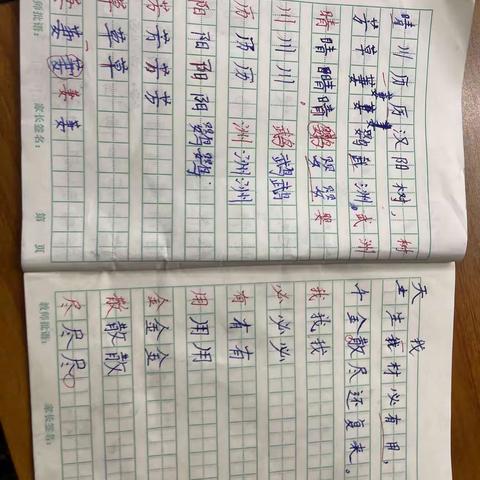 晴川历历汉阳树，
芳草萋萋鹦鹉洲。
晴晴晴晴 鹦
川川川 鹉鹉鹉
历历历 洲洲洲
阳阳阳阳 鹦鹦
芳芳芳芳
草草草
萋萋萋
教师批语：
家长签名：
第 页
天生我材必有用，
千金散尽还复来。
我我我
必必必
有有有
用用用
金金金
散散散
尽尽尽
教师批语：
家长签名：